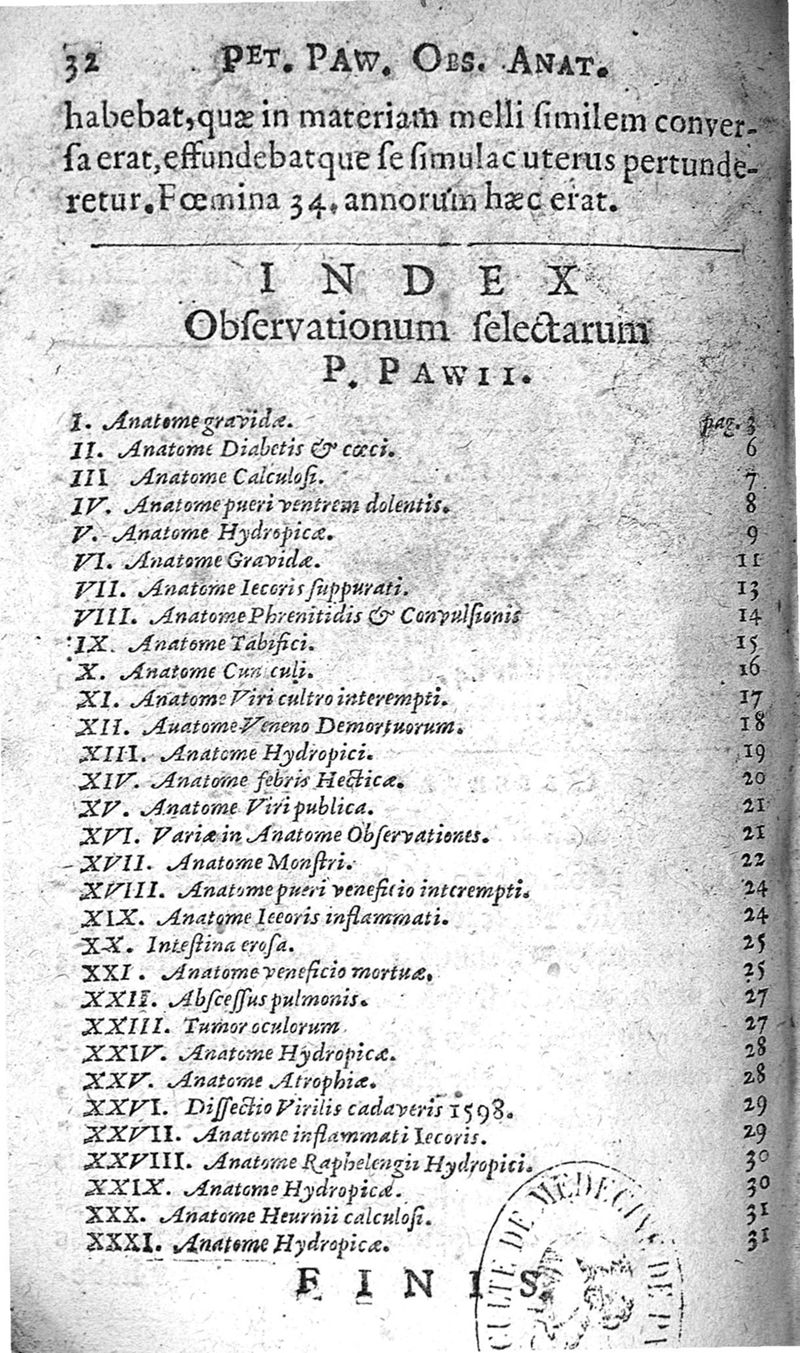 32 PET. PAW. OBS. ANAT.
habebat, quæ in materiam melli ſimilem conver-
ſa erat, effundebatque ſe ſimulac uterus pertunde-
retur. Fœmina 34. annorum hæc erat.
INDEX
Obſervationum ſelectarum
P. PAWII.
I. Anatome gravidæ. pag. 3
II. Anatome Diabetis & cæci. 6
III Anatome Calculoſi. 7
IV. Anatome pueri ventrem dolentis. 8
V. Anatome Hydropicæ. 9
VI. Anatome Gravidæ. 11
VII. Anatome Iecoris ſuppurati. 13
VIII. Anatome Phrenitidis & Convulſionis 14
IX. Anatome Tabifici. 15
X. Anatome Cun culi. 16
XI. Anatome Viri cultro interempti. 17
XII. Auatome Veneno Demortuorum. 18
XIII. Anatome Hydropici. 19
XIV. Anatome febris Hecticæ. 20
XV. Anatome Viri publica. 21
XVI. Variæ in Anatome Obſervationes. 21
XVII. Anatome Monſtri. 22
XVIII. Anatome pueri veneficio interempti. 24
XIX. Anatome Ieeoris inflammati. 24
XX. Inteſtina eroſa. 25
XXI. Anatome veneficio mortuæ. 25
XXII. Abſceſſus pulmonis. 27
XXIII. Tumor oculorum 27
XXIV. Anatome Hydropicæ. 28
XXV. Anatome Atrophiæ. 28
XXVI. Diſſectio Virilis cadaveris 1598. 29
XXVII. Anatome inflammati Iecoris. 29
XXVIII. Anatome Raphelengii Hydropici. 30
XXIX. Anatome Hydropicæ. 30
XXX. Anatome Heurnii calculoſi. 31
XXXI. Anatome Hydropicæ. 31
FINIS.
CULTE DE MEDECINE DE